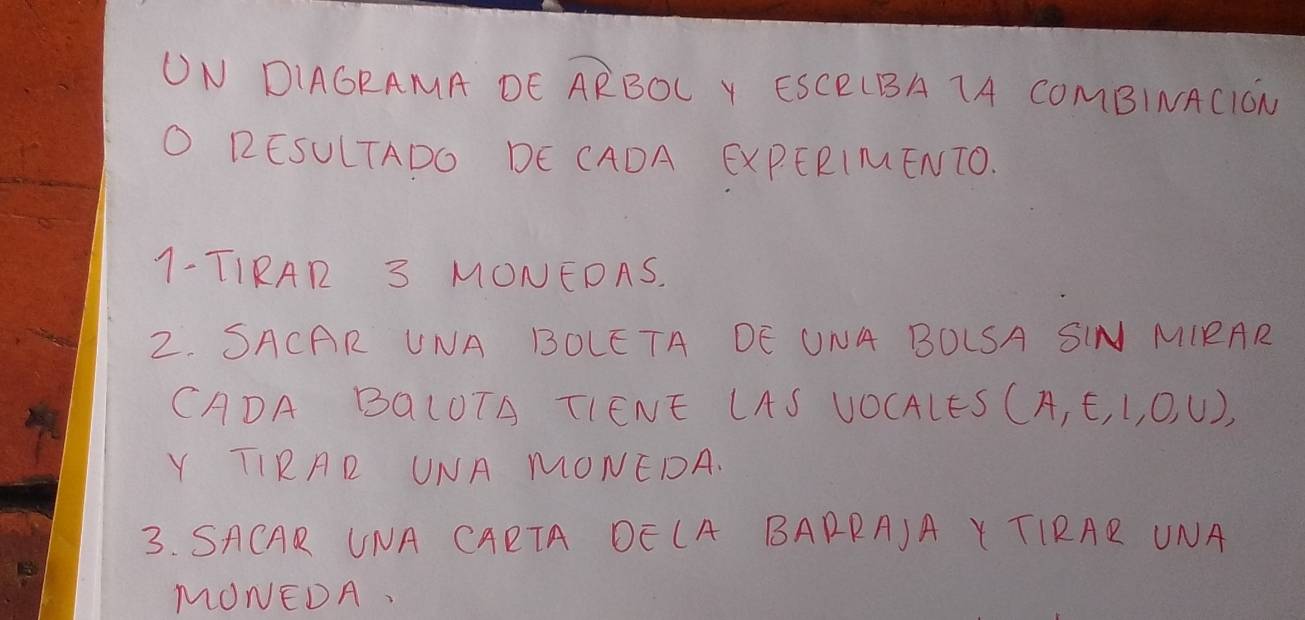 UN DIAGRAMA DE ARBOL Y ESCRIBA LA COMBINACIÓN
O RESULTADO DE CADA EXPERIMENTO.
1-TIRAR 3 MONEDAS.
2. SACAR UNA BOLETA DE UNA BOLSA SIN MIRAR
CADA BALOTA TIENE LAS VOCALES (A, E, I, O, U),
Y TIRAR UNA MONEDA.
3. SACAR UNA CARTA DE LA BARRAJA Y TIRAR UNA
MONEDA.